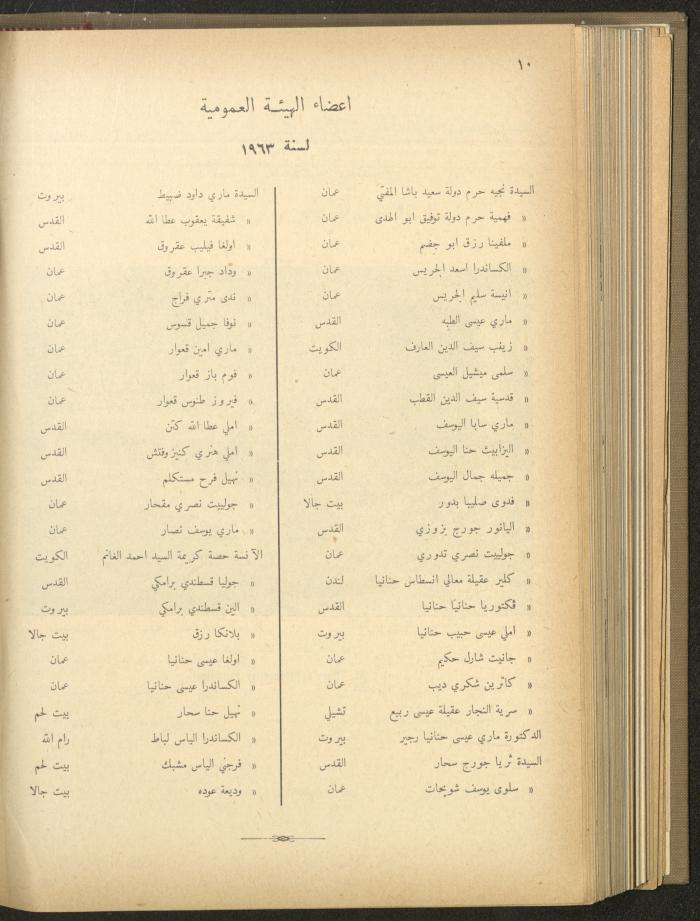 ١٠
اعضاء الهيئة العمومية
لسنة ١٩٦٣
السيدة نجيه حرم دولة سعيد باشا المفتي عمان
« فهمية حرم دولة توفيق ابو الهدى عمان
« ملفينا رزق ابو جضم عمان
« الكساندرا اسعد الحريس عمان
« انيسة سليم الحريس عمان
« ماري عيسى الطبه القدس
« زينب سيف الدين العارف الكويت
« سلمى ميشيل العيسى عمان
« قدسية سيف الدين القطب القدس
« ماري سابا اليوسف القدس
« اليزابيث حنا اليوسف القدس
« جميله جمال اليوسف القدس
« فدوى صليبا بدور بيت جالا
« اليانور جورج بزوزي القدس
« جولييت نصري تدوري عمان
« كلير عقيلة معالي انسطاس حنانيا لندن
« فكتوريا حنانيا حنانيا القدس
« املي عيسى حبيب حنانيا بيروت
« جانيت شارل حكيم عمان
« كاترين شكري ديب عمان
« سرية النجار عقيلة عيسى ربيع تشيلي
الدكتورة ماري عيسى حنانيا رجير بيروت
السيدة ثريا جورج سحار القدس
« سلوى يوسف شويحات عمان
السيدة ماري داود ضبيط بيروت
« شفيقة يعقوب عطا الله القدس
« اولغا فيليب عقروق القدس
« وداد جبرا عقروق عمان
« ندى متري فراج عمان
« نوفا جميل قسوس عمان
« ماري امين قعوار عمان
« فوم باز قعوار عمان
« فيروز طنوس قعوار عمان
« املي عطا الله كتن القدس
« املي هنري كنيزوفتش القدس
« نهيل فرح مستكلم القدس
« جولييت نصري مقحار عمان
« ماري يوسف نصار عمان
الآنسة حصة كريمة السيد احمد الغانم الكويت
« جوليا قسطندي برامكي القدس
« الين قسطندي برامكي بيروت
« بلانكا رزق بيت جالا
« اولغا عيسى حنانيا عمان
« الكساندرا عيسى حنانيا عمان
« نهيل حنا سحار بيت لحم
« الكساندرا الياس لباط رام الله
« فرجني الياس مشبك بيت لحم
« وديعة عوده بيت جالا